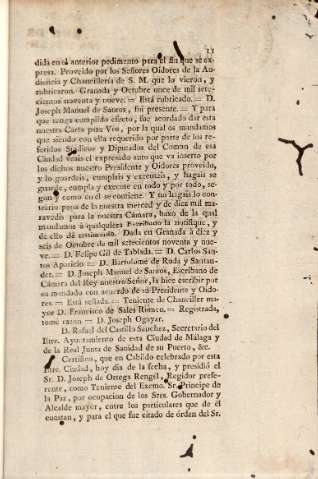 11
dida en el anterior pedimento para el fin que se ex-
presa. Proveido por los Señores Oidores de la Au-
diencia y Chancillería de S. M. que lo vieron, y
rubricaron. Granada y Octubre once de mil sete-
cientos noventa y nueve. = Está rubricado. = D.
Joseph Manuel de Santos, fui presente. = Y para
que tenga cumplido efecto, fue acordado dar esta
nuestra Carta para Vos, por la qual os mandamos
que siendo con ella requerido por parte de los re-
feridos Síndicos y Diputados del Comun de esa
Ciudad veais el expresado auto que va inserto por
los dichos nuestro Presidente y Oidores proveido,
y lo guardeis, cumplais y executeis, y hagais se
guarde, cumpla y execute en todo y por todo, se-
gun y como en el se contiene. Y no hagais lo con-
trario pena de la nuestra merced y de diez mil ma-
ravedis para la nuestra Cámara, baxo de la qual
mandamos á qualquiera Escribano la notifique, y
de ello dé testimonio. Dada en Granada á diez y
seis de Octubre de mil setecientos noventa y nue-
ve. = D. Felipe Gil de Taboada. = D. Carlos San-
tos Aparicio = D. Bartolomé de Rada y Santan-
der. = D. Joseph Manuel de Santos, Escribano de
Cámara del Rey nuestro Señor, la hice escribir por
su mandado con acuerdo de su Presidente y Oido-
res. = Está sellada. = Teniente de Chanciller ma-
yor D. Francisco de Sales = Registrada,
tomé razon. = D. Joseph Ogayar.
D. Rafael del Castillo Sanchez, Secretario del
Iltre. Ayuntamiento de esta Ciudad de Málaga y
de la Real Junta de Sanidad de su Puerto, &c.
Certifico, que en Cabildo celebrado por esta
Iltre. Ciudad, hoy dia de la fecha, y presidió el
Sr. D. Joseph de Ortega Rengél, Regidor prefe-
rente, como Teniente del Excmo. Sr. Príncipe de
la Paz, por ocupacion de los Sres. Gobernador y
Alcalde mayor, entre los particulares que de él
constan, y para el que fue citado de órden del Sr.